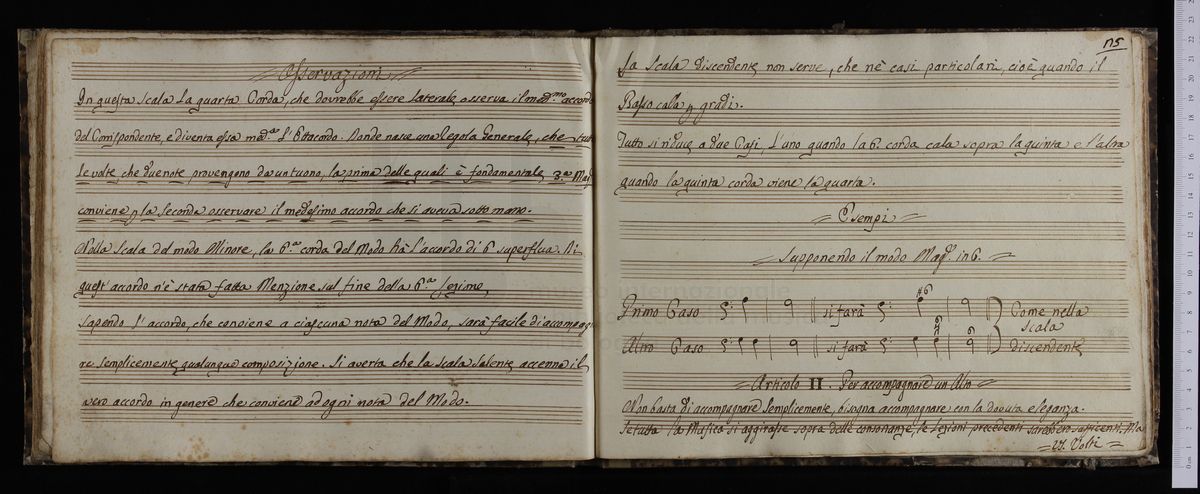 Osservazioni
In questa Scala La quarta Corda, che dovrebbe essere Laterale osserva il med.mo accord
del Corrispondente, e diventa essa med.a L'Ottacordo. Donde nasce una Regola Generale, che tut
le volte, che due note provengono da un tuono, la prima delle quali è fondamentale 3.a Mag
conviene p la Seconda osservare il medesimo accordo che si aveva sotto mano.
Nella Scala del modo Minore, la 6.a corda del Modo hà l'accordo di 6 superflua. Di
quest'accordo n'è stata fatta Menzione sul fine della 6.a Lezione,
Sapendo L'accordo, che conviene a ciascuna nota del Modo, sarà facile di accompag
re semplicemente qualunque composizione. Si averta che la Scala Salente accenna il
vero accordo in genere che conviene ad ogni nota del Modo.
115
La Scala Discendente non serve, che nè casi particolari, cioè quando il
Basso cala p gradi.
Tutto si riduce a due Casi, L'uno quando la 6.a corda cala sopra la quinta e l'altra
quando la quinta corda viene la quarta.
Esempi
Supponendo il modo Mag.e in 6.
Primo Caso si farà #6 Come nella
Scala
Altro Caso si farà 6 Discendente
Articolo II. Per accompagnare un Alto
Non basta di accompagnare Semplicemente, bisogna accompagnare con la dovuta eleganza.
Se tutta la Musica si aggirasse sopra delle consonanze, le Lezioni precedenti sarebbero sufficenti, Ma
Volti